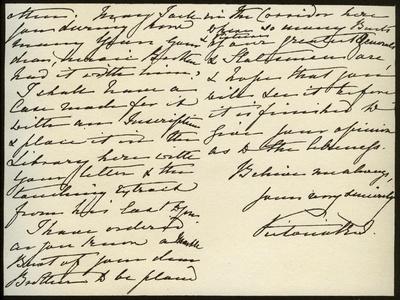 other. May I ask
you during how
many Years your
dear, heroic Brother
had it with him?
I shall have a
Case made for it
with an Inscription
& place it in the
Library here with
your letter & the
touching extract
from his last to you.
I have ordered
as you know a Marble
Bust of your dear
Brother to be placed
in the Corridor here
where so many Busts
& Pictures
of our greatest Generals
& Statesmen are,
& hope that you
will see it before
it is finished to
give your opinion
as to the likeness.
Believe me always,
yours very sincerely
Victoria R.I.